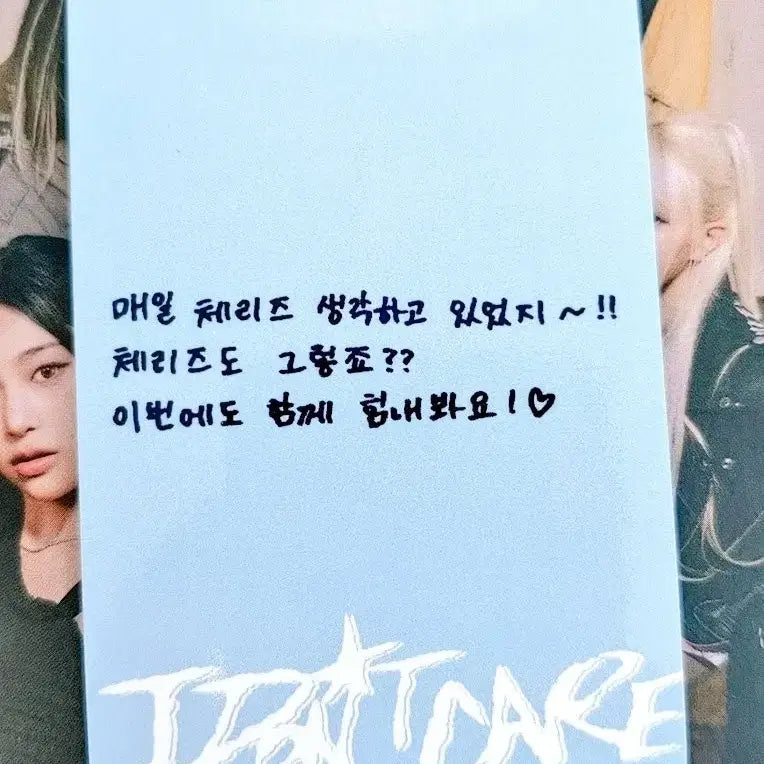 매일 체리즈 생각하고 있었지~!!
체리즈도 그렇죠??
이번에도 함께 힘내봐요!♡
I DON'T CARE